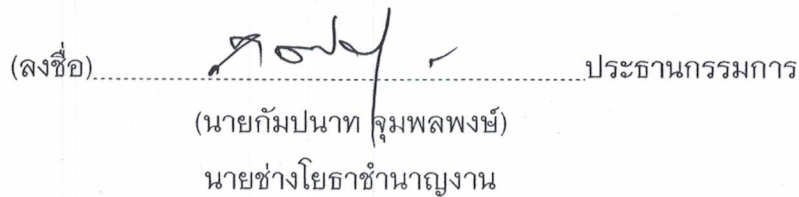 (ลงชื่อ)........................................ประธานกรรมการ
(นายกัมปนาท จุมพลพงษ์)
นายช่างโยธาชำนาญงาน